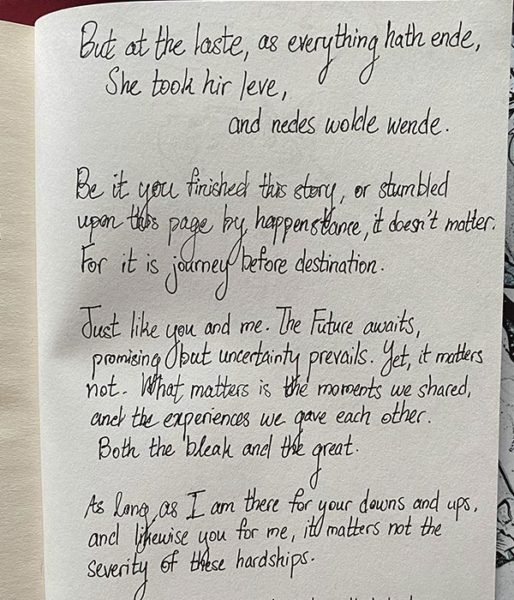 But at the laste, as everything hath ende,
She took hir leve,
and nedes wolde wende.
Be it you finished this story, or stumbled
upon this page by happenstance, it doesn't matter.
For it is journey before destination.
Just like you and me. The Future awaits,
promising but uncertainty prevails. Yet, it matters
not. What matters is the moments we shared,
and the experiences we gave each other.
Both the bleak and the great.
As long as I am there for your downs and ups,
and likewise you for me, it matters not the
severity of these hardships.